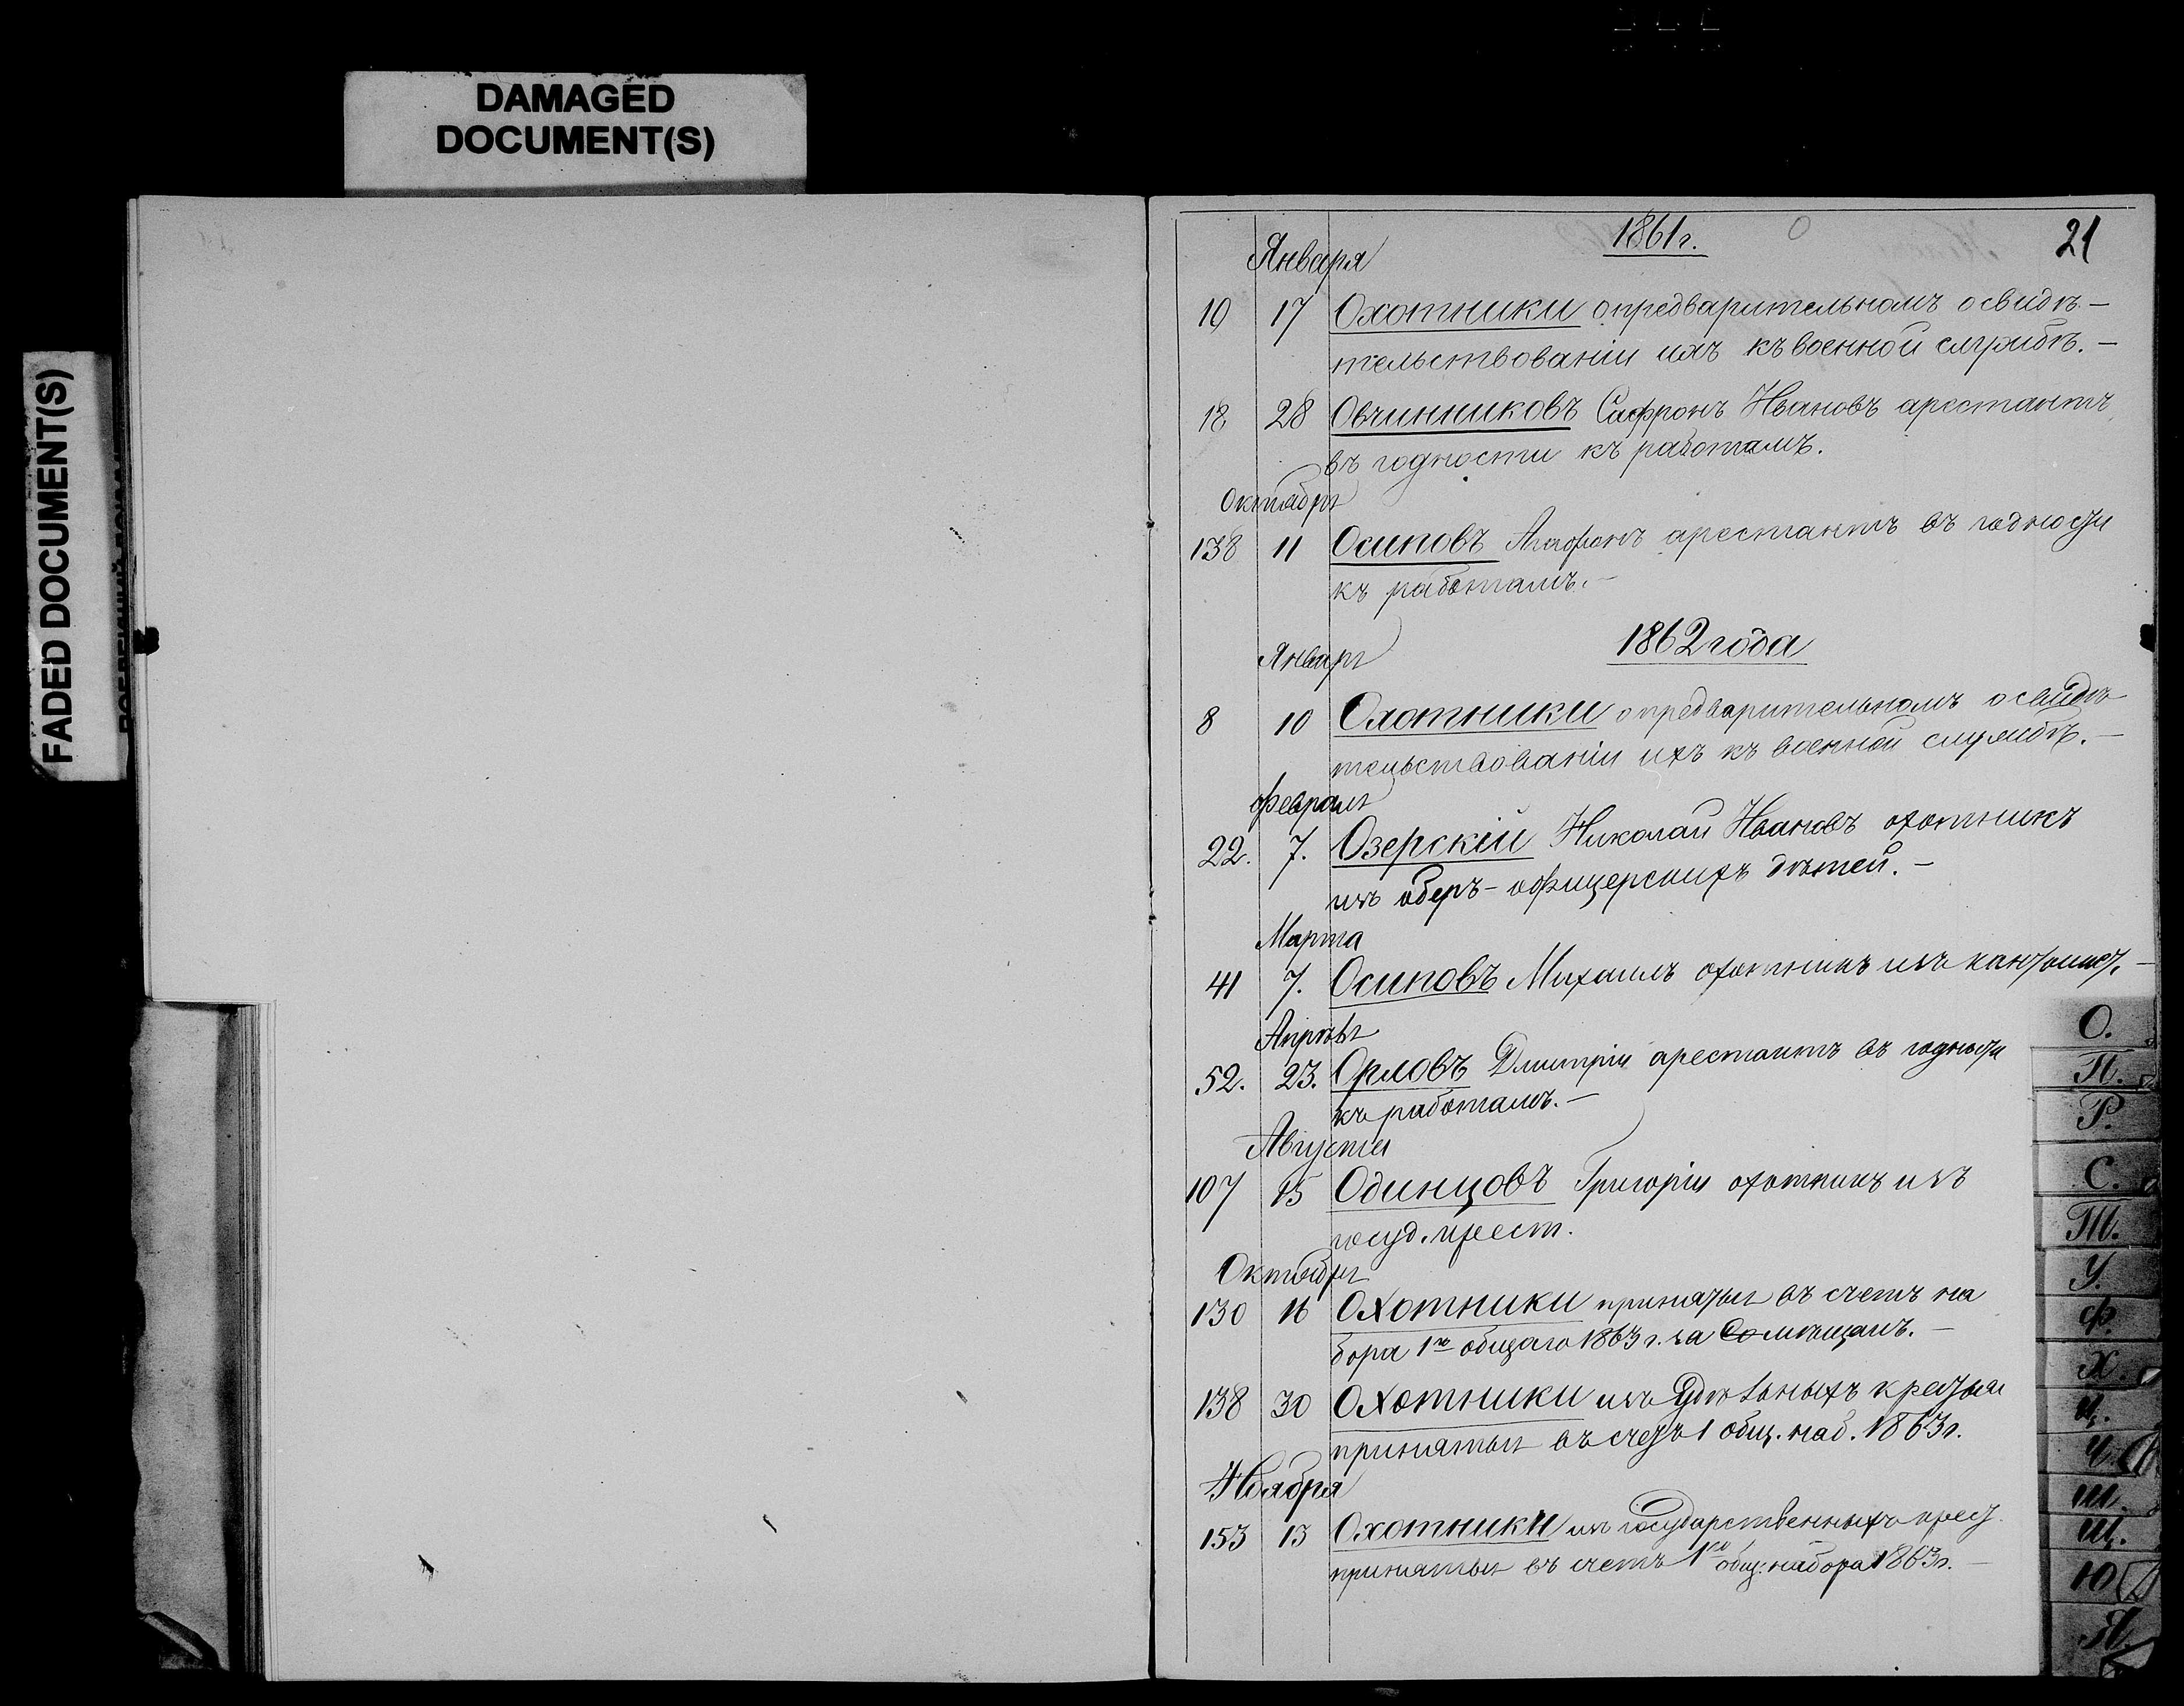 DAMAGED
DOCUMENT(S)
FADED DOCUMENT(S)
1861 г. О 21
Января
10 17 Охотники о предварительномъ освидѣ-
тельствованіи ихъ къ военной службѣ.-
18 28 Овчинниковъ Сафронъ Ивановъ арестантъ
въ годности къ работамъ.
Октября
138 11 Осиповъ Агафонъ арестантъ въ годности
къ работамъ.-
1862 года
Января
8 10 Охотники о предварительномъ освидѣ-
тельствованіи ихъ къ военной службѣ.-
Февраля
22. 7. Озерскій Николай Ивановъ охотникъ
изъ оберъ-офицерскихъ дѣтей.-
Марта
41 7. Осиповъ Михаилъ охотникъ изъ
Апрѣля
52. 23. Орловъ Дмитрій арестантъ въ годности
къ работамъ.-
Августа
107 15 Одинцовъ Григорій охотникъ изъ
госуд. крест.
Октября
130 16 Охотники принятые въ счетъ на
бора 1го общаго 1863 г. за мѣщанъ.-
138 30 Охотники изъ Удѣльныхъ крестьян
принятые въ счетъ 1 общ. наб. 1863 г.
Ноября
153 13 Охотники изъ Государственныхъ крест.
принятые въ счетъ 1го общ: набора 1863 г.-
О.
П.
Р.
С.
Т.
У.
Ф.
Х.
Ц.
Ч.
Ш.
Щ.
Ю
Я.